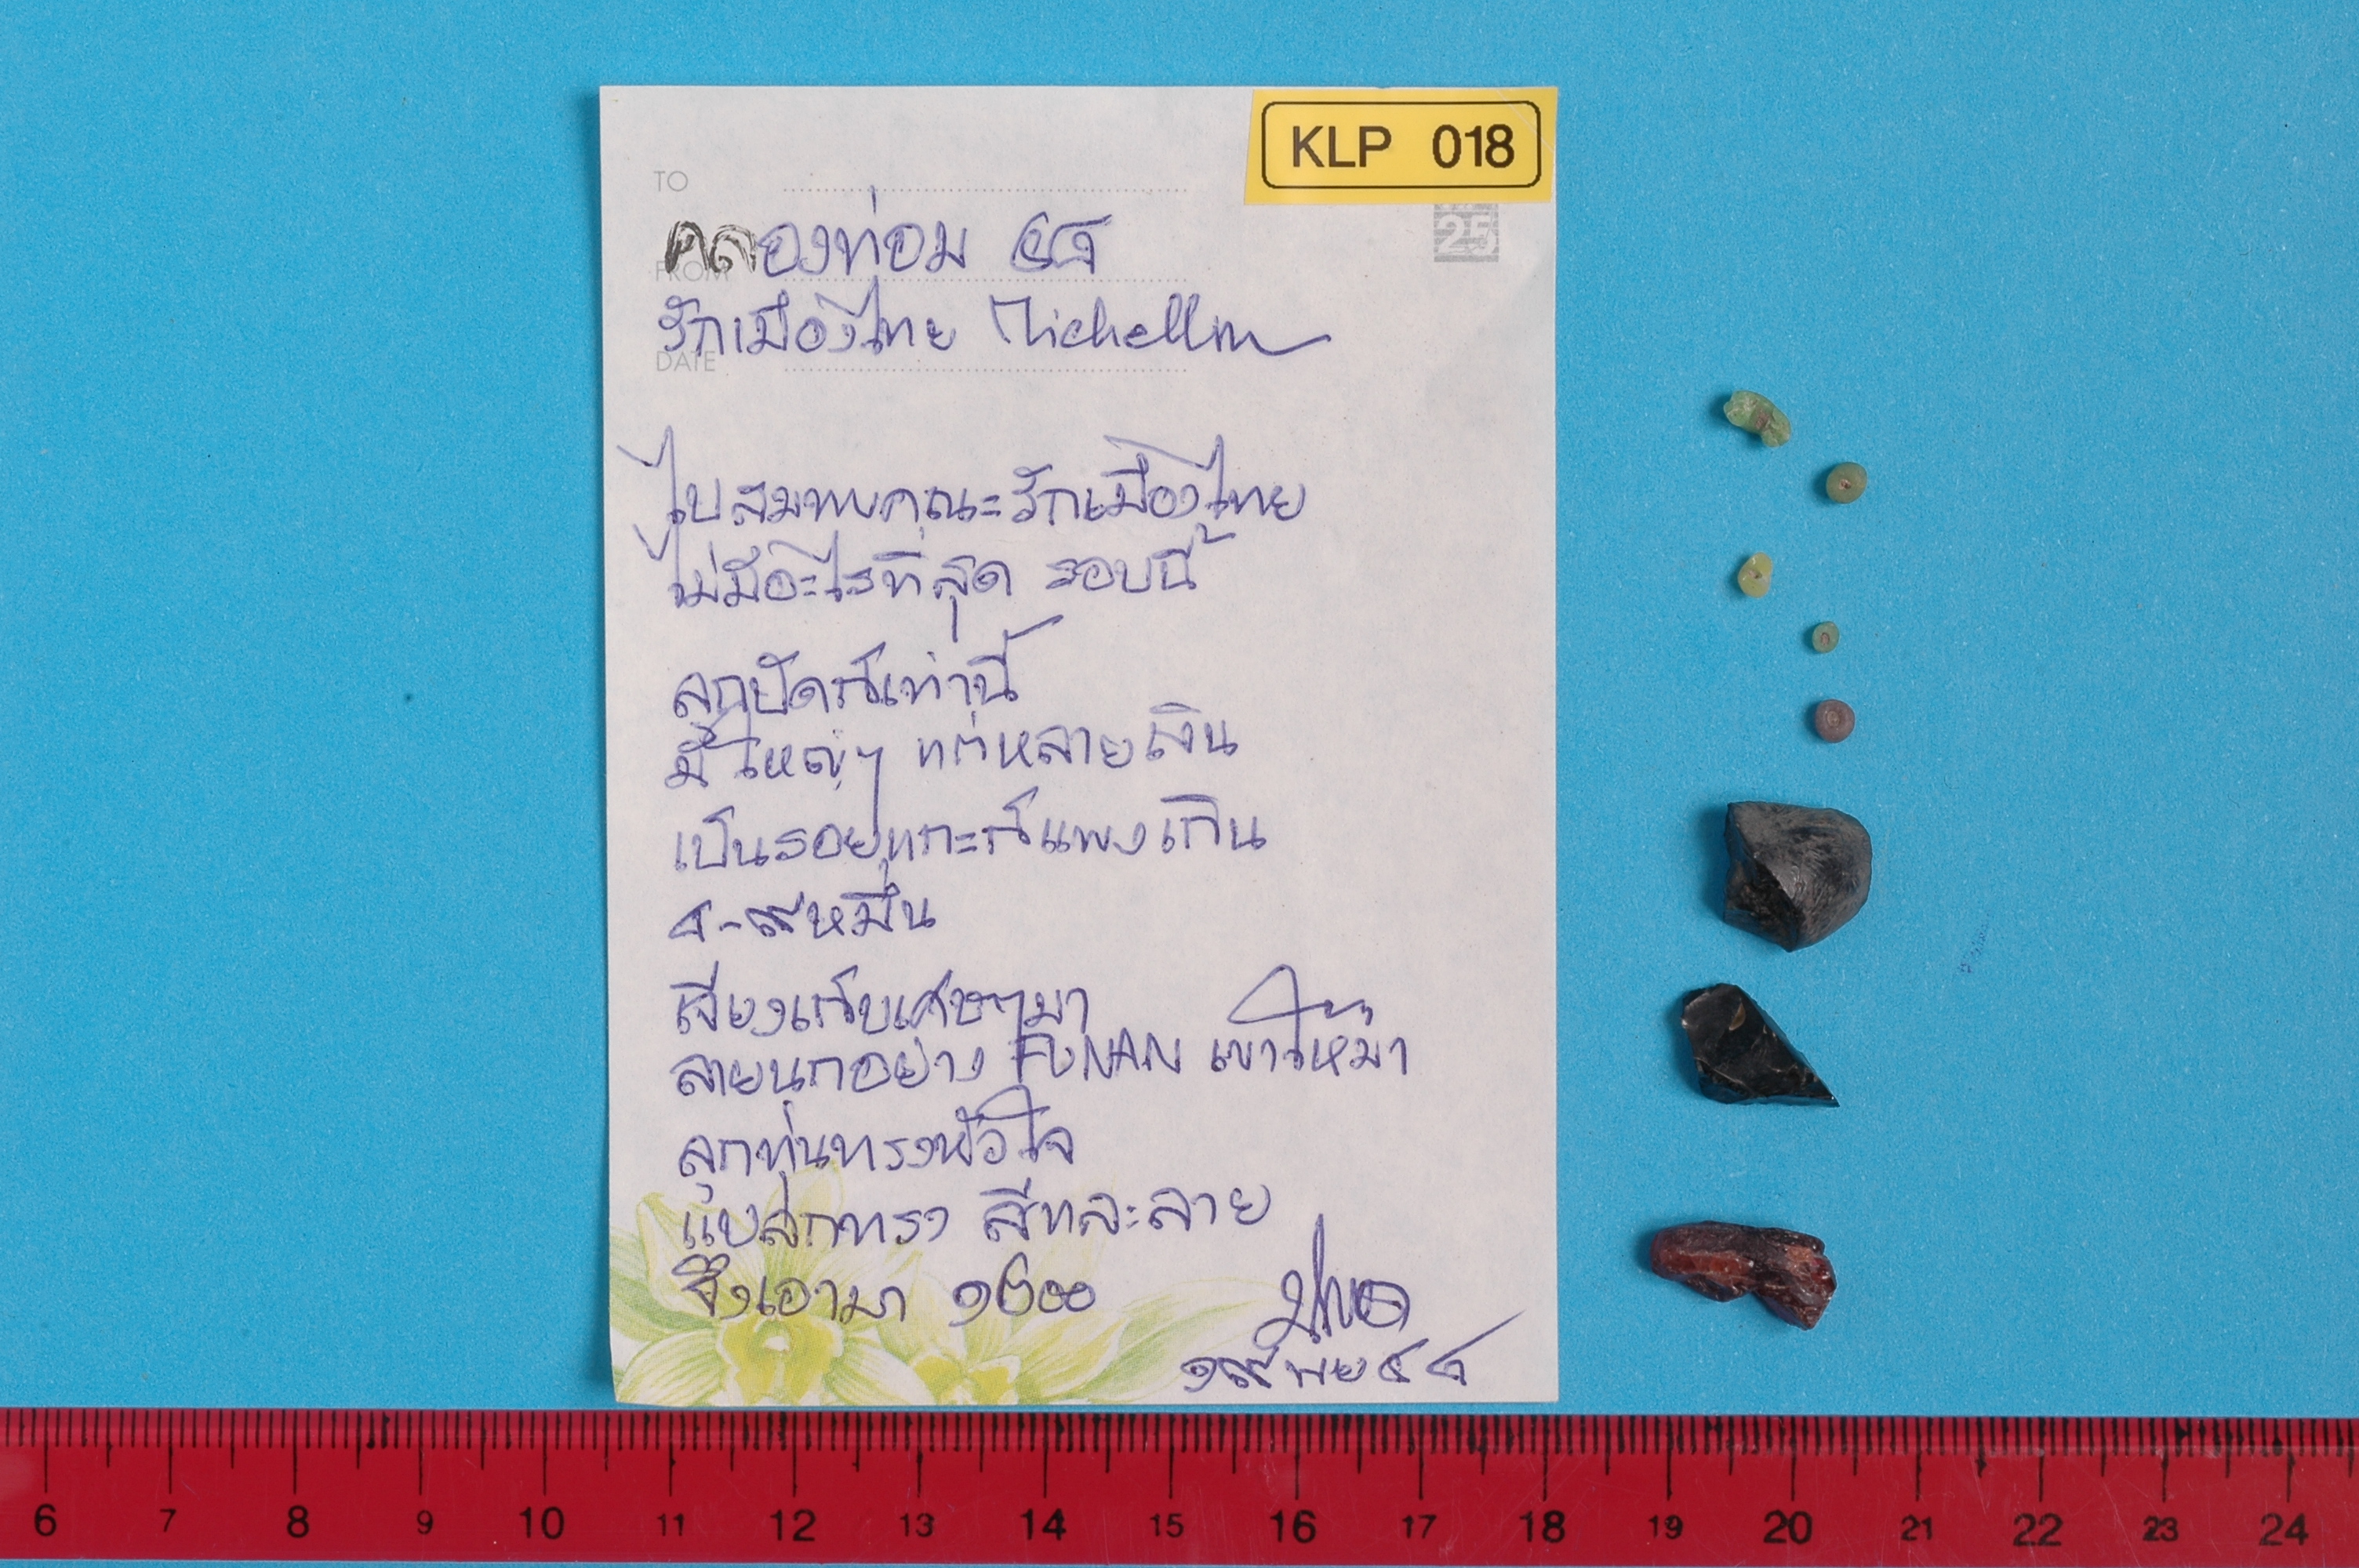 KLP 018
TO
25
คลองท่อม ๕๔
FROM
รักเมืองไทย Michellin
DATE
ไปสมทบคณะรักเมืองไทย
ไม่มีอะไรที่สุด รอบนี้
ลูกปัดก็เท่านี้
มีใหญ่ๆ แต่หลายเงิน
เป็นรอยแกะก็แพงเกิน
๔-๙หมื่น
จึงเก็บเศษๆมา
ลายนกอย่าง FUNAN เขาให้มา
ลูกทุ่นทรงหัวใจ
แปลกทรง สีและลาย
จึงเอามา ๑๒๐๐
๑๙ พย ๕๔
6 7 8 9 10 11 12 13 14 15 16 17 18 19 20 21 22 23 24